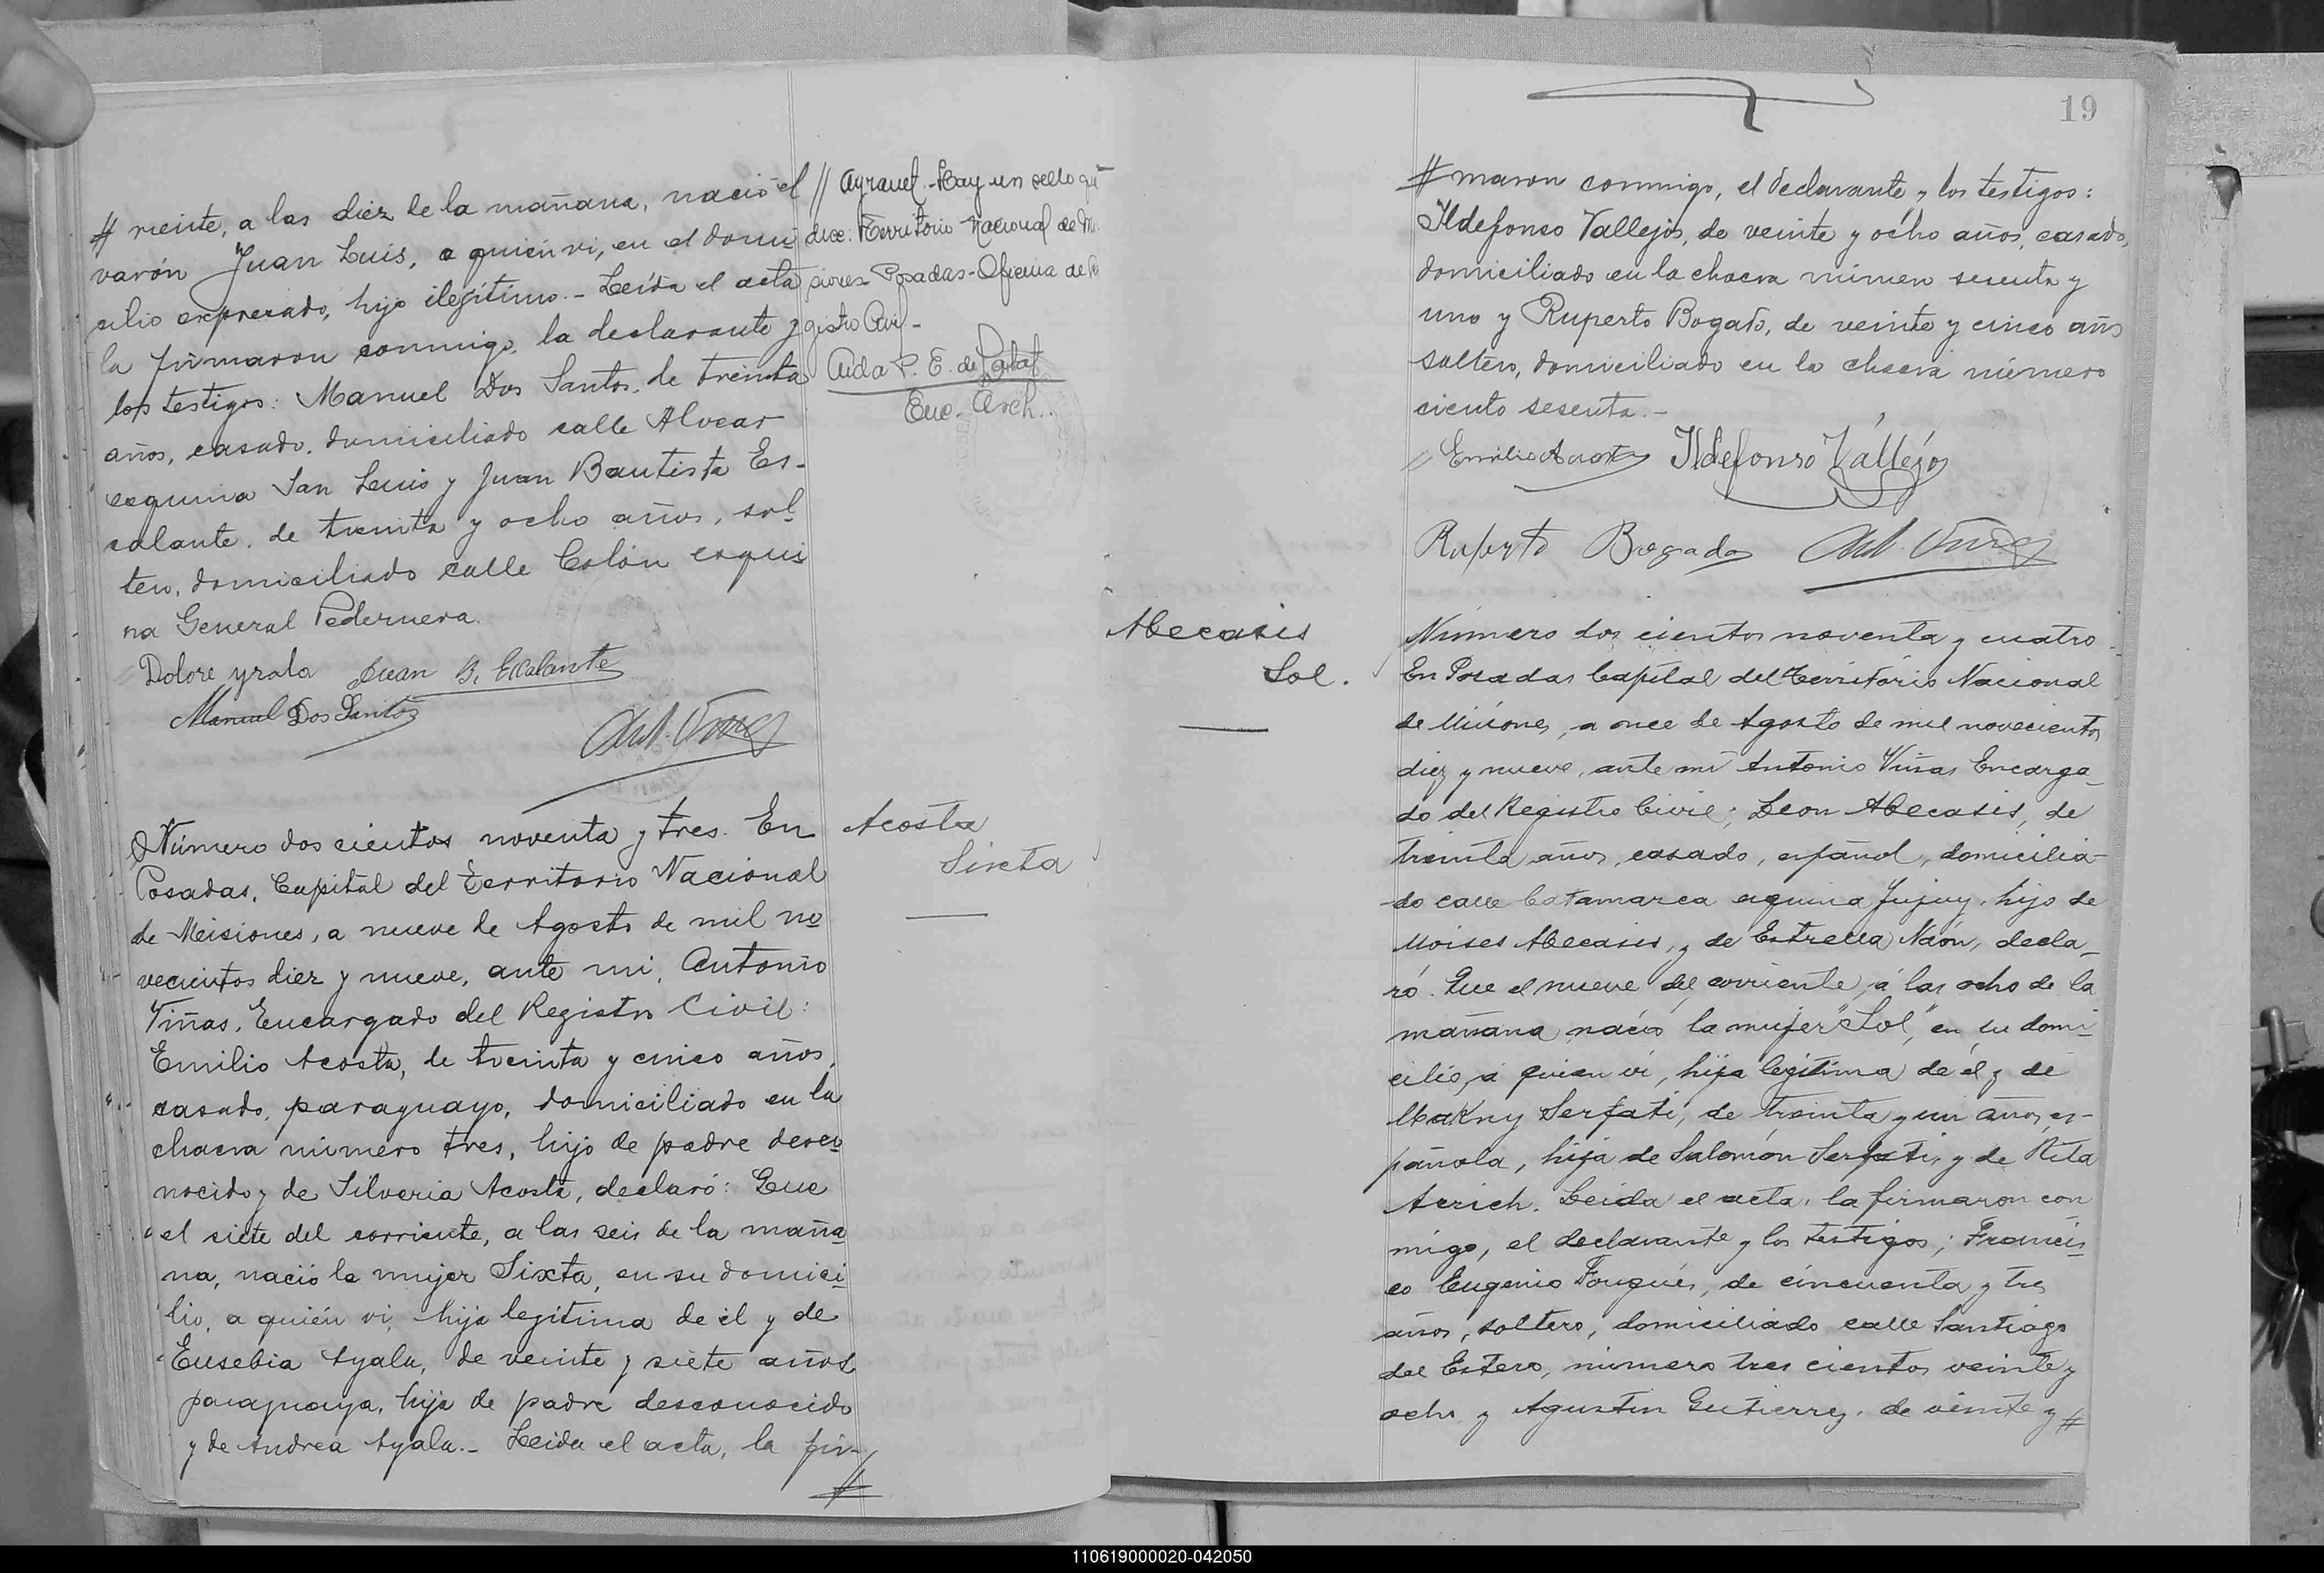 # rriente, a las diez de la mañana, nació el
varón Juan Luis, a quién vi, en el domi
cilio expresado, hijo ilegítimo.- Leída el acta
la firmaron conmigo, la declarante y
los testigos: Manuel Dos Santos, de treinta
años, casado, domiciliado calle Alvear
esquina San Luis y Juan Bautista Es-
calante, de treinta y ocho años, sol-
tero, domiciliado calle Colón esqui
na General Pedernera.
Dolore yrala Juan B. Escalante
Manuel Dos Santos
Ant. Viñas
// Hay un sello qu
dice: Territorio Nacional de Mi
siones-Posadas-Oficina de R
gistro Civil-
Aida P. E. de
Enc. Arch.
Número dos cientos noventa y tres. En
Posadas, Capital del Territorio Nacional
de Misiones, a nueve de Agosto de mil no
vecientos diez y nueve, ante mi, Antonio
Viñas, Encargado del Registro Civil:
Emilio Acosta, de treinta y cinco años,
casado, paraguayo, domiciliado en la
chacra número tres, hijo de padre desco
nocido y de Silveria Acosta, declaró: Que
el siete del corriente, a las seis de la maña
na, nació la mujer Sixta, en su domici
lio, a quién vi, hija legítima de él y de
Eusebia Ayala, de veinte y siete años
paraguaya, hija de padre desconocido
y de Andrea Ayala.- Leida el acta, la fir-
#
Acosta
Sixta
19
# maron conmigo, el declarante y los testigos:
Ildefonso Vallejos, de veinte y ocho años, casado,
domiciliado en la chacra número sesenta y
uno y Ruperto Bogado, de veinte y cinco años
soltero, domiciliado en la chacra número
ciento sesenta.-
Emilio Acosta Ildefonso Vallejos
Ruperto Bogado Ant. Viñas
Abecasis
Sol.
Número dos cientos noventa y cuatro
En Posadas Capital del Territorio Nacional
de Misiones, a once de Agosto de mil novecientos
diez y nueve, ante mí Antonio Viñas Encarga-
do del Registro Civil; Leon Abecasis, de
treinta años, casado, español, domicilia-
do calle Catamarca esquina Jujuy, hijo de
Moises Abecasis, y de Estrella Naón, decla-
ró. Que el nueve del corriente, á las ocho de la
mañana, nació la mujer "Sol", en su domi
cilio, á quien ví, hija legítima de él y de
Makny Serfati, de treinta y un años, es-
pañola, hija de Salomón Serfati, y de Rita
Acrich. Leida el acta, la firmaron con
migo, el declarante y los testigos; Francis
co Eugenio Fouqués, de cincuenta y tres
años, soltero, domiciliado calle Santiago
del Estero, número tres cientos veinte y
ocho y Agustin Gutierrez, de veinte y #
110619000020-042050